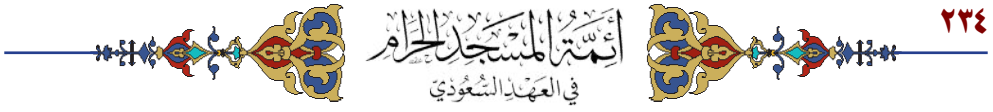 ٢٣٤
أَئِمَّةُ المَسْجِدِ الحَرَامِ
في العَهْدِ السُّعُودِيِّ